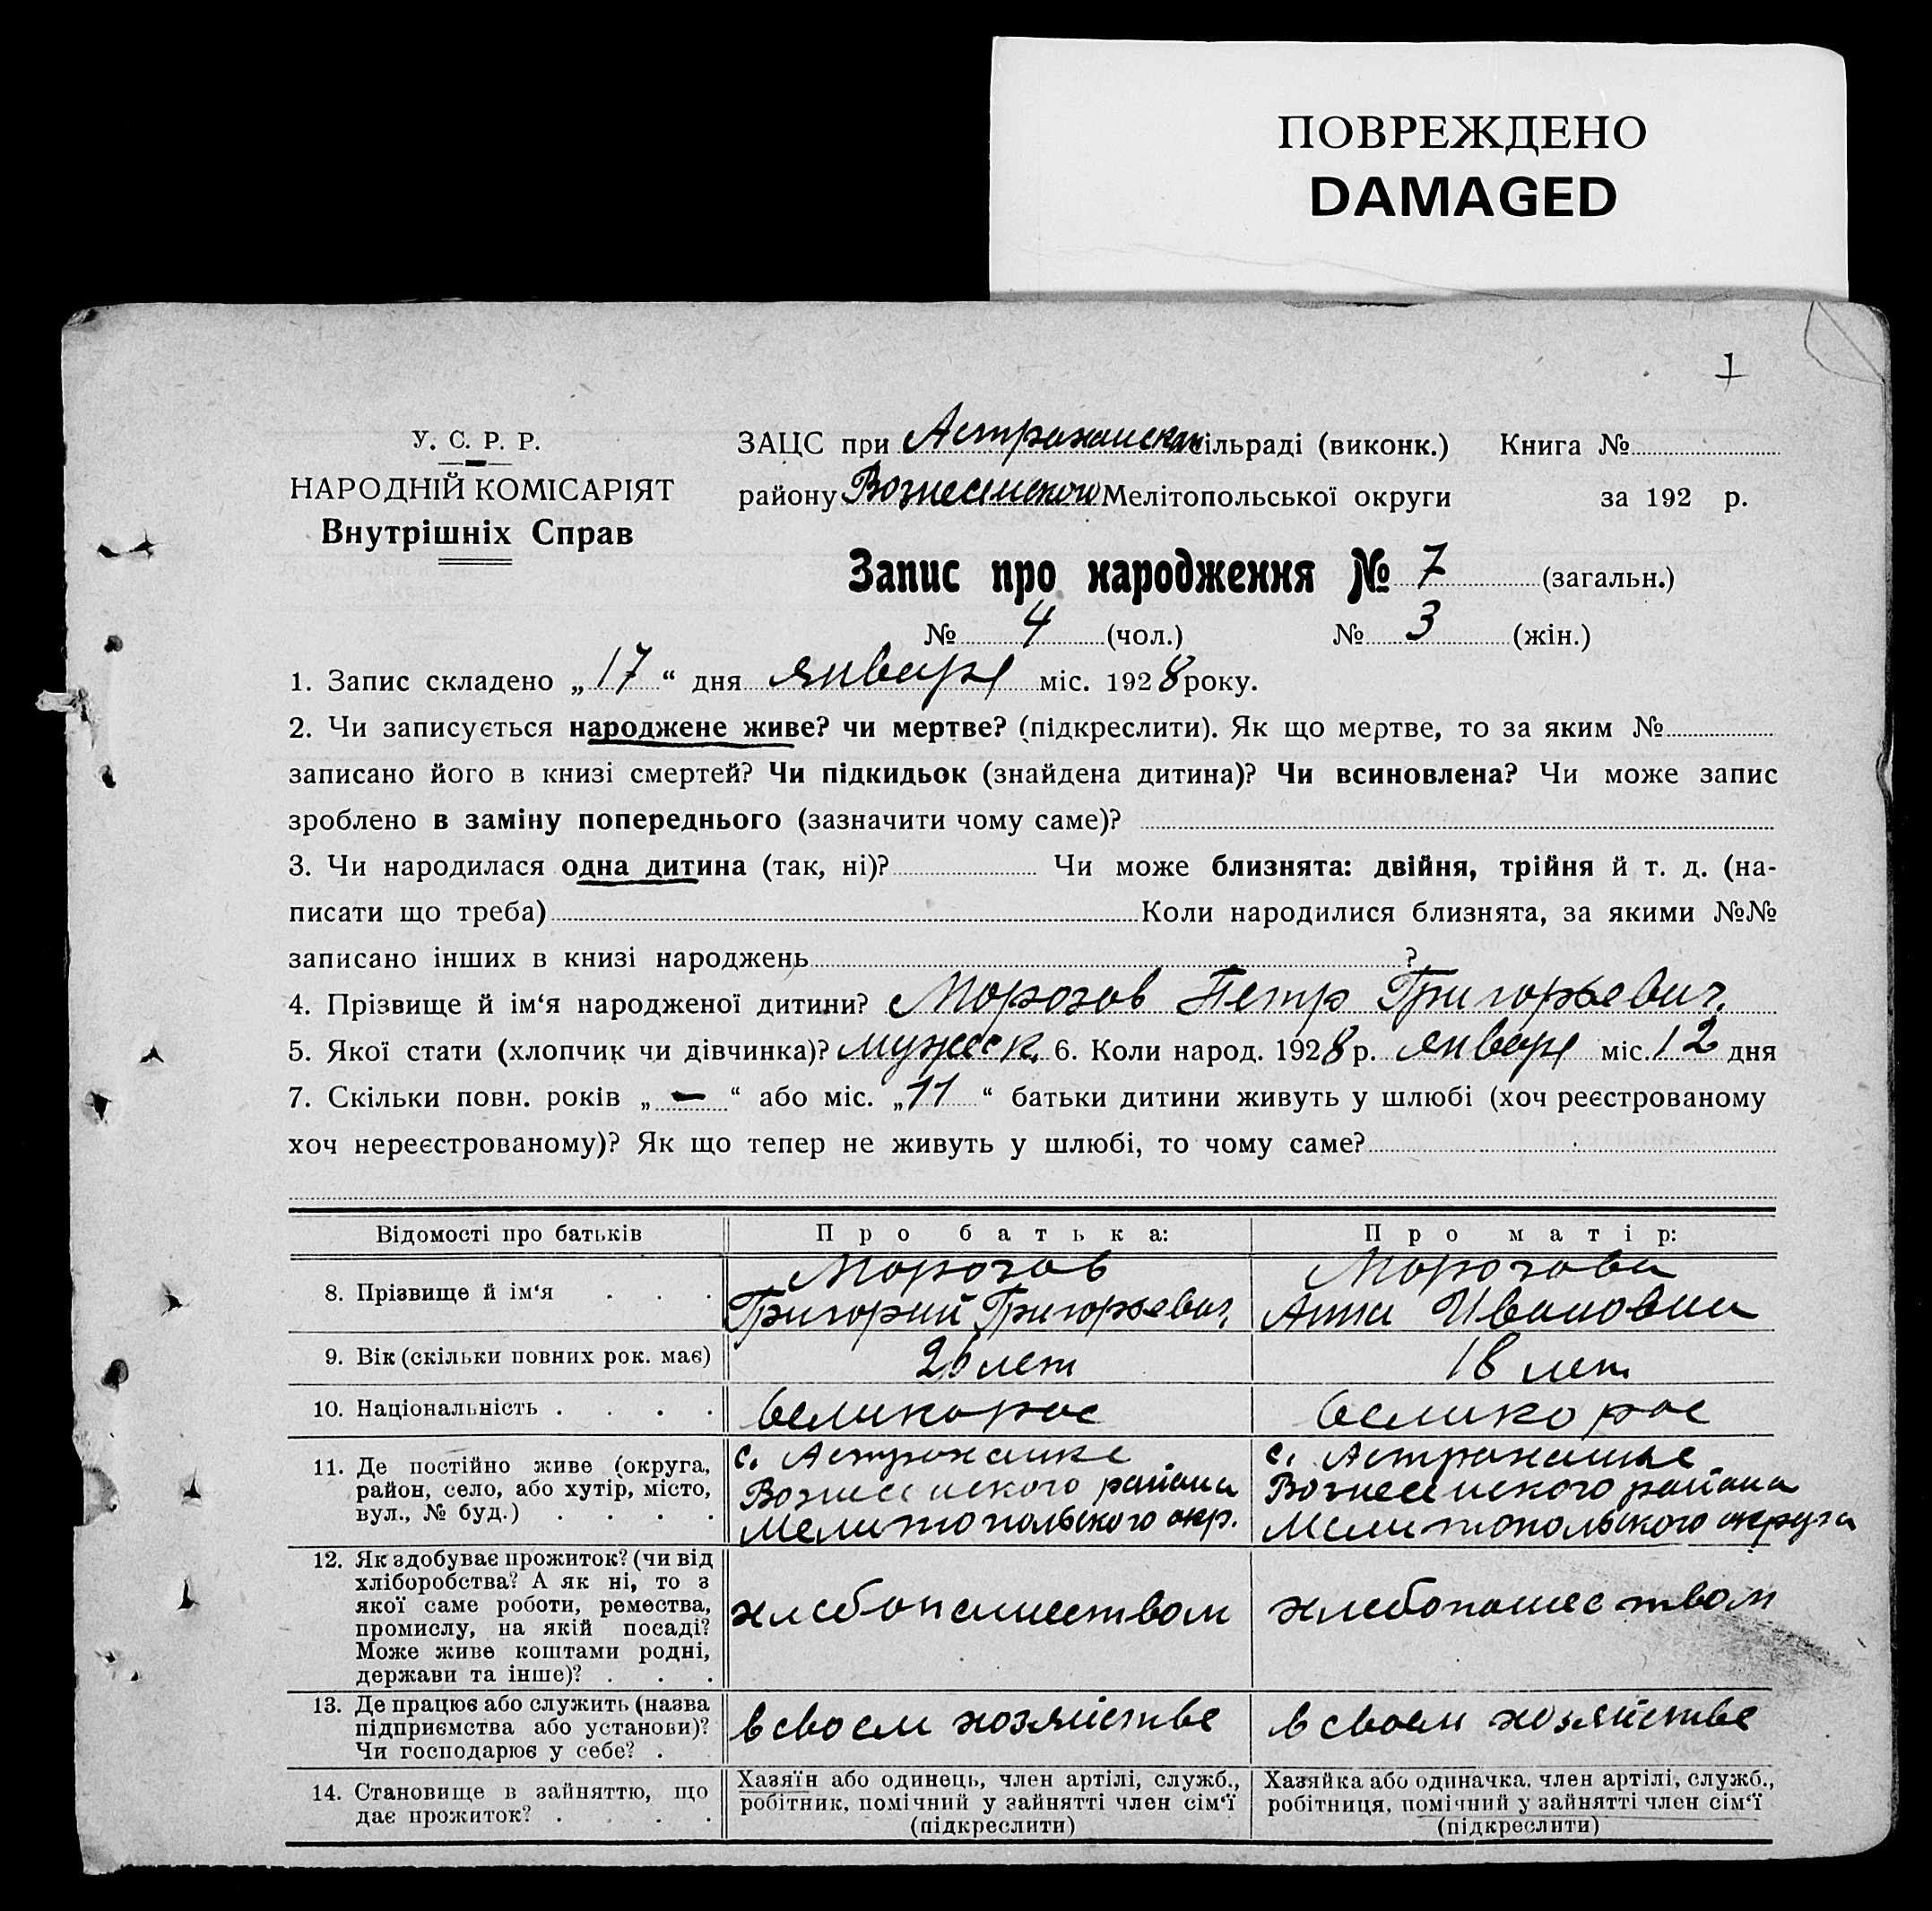 ПОВРЕЖДЕНО
DAMAGED
1
У. С. Р. Р.
НАРОДНІЙ КОМІСАРІЯТ
Внутрішніх Справ
ЗАЦС при Астраханском сільраді (виконк.) Книга №
району Вознесенского Мелітопольської округи за 192 р.
Запис про народження № 7 (загальн.)
№ 4 (чол.) № 3 (жін.)
1. Запис складено „17“ дня января міс. 1928 року.
2. Чи записується народжене живе? чи мертве? (підкреслити). Як що мертве, то за яким №
записано його в книзі смертей? Чи підкидьок (знайдена дитина)? Чи всиновлена? Чи може запис
зроблено в заміну попереднього (зазначити чому саме)?
3. Чи народилася одна дитина (так, ні)? Чи може близнята: двійня, трійня й т. д. (на-
писати що треба) Коли народилися близнята, за якими №№
записано інших в книзі народжень ?
4. Прізвище й ім‘я народженої дитини? Морозов Петр Григорьевич.
5. Якої стати (хлопчик чи дівчинка)? мужеск. 6. Коли народ. 1928 р. января міс. 12 дня
7. Скільки повн. років „ — “ або міс. „11“ батьки дитини живуть у шлюбі (хоч реєстрованому
хоч нереєстрованому)? Як що тепер не живуть у шлюбі, то чому саме?
Відомості про батьків Про батька: Про матір:
8. Прізвище й ім‘я . . . Морозов Григорий Григорьевич. Морозова Анна Ивановна
9. Вік (скільки повних рок. має) 26 лет 18 лет
10. Національність . . . . великорос великорос
11. Де постійно живе (округа, с. Астраханке с. Астраханке
район, село, або хутір, місто, Вознесенского района Вознесенского района
вул., № буд.) . . . . Мелитопольского окр. Мелитопольского округа
12. Як здобуває прожиток? (чи від
хліборобства? А як ні, то з
якої саме роботи, ремества, хлебопашеством хлебопашеством
промислу, на якій посаді?
Може живе коштами родні,
держави та інше)? . . .
13. Де працює або служить (назва
підприємства або установи)? в своем хозяйстве в своем хозяйстве
Чи господарює у себе? .
14. Становище в зайняттю, що Хазяїн або одинець, член артілі, служб., Хазяйка або одиначка, член артілі, служб.,
дає прожиток? . . . . робітник, помічний у зайнятті член сім‘ї робітниця, помічний у зайнятті член сім‘ї
(підкреслити) (підкреслити)